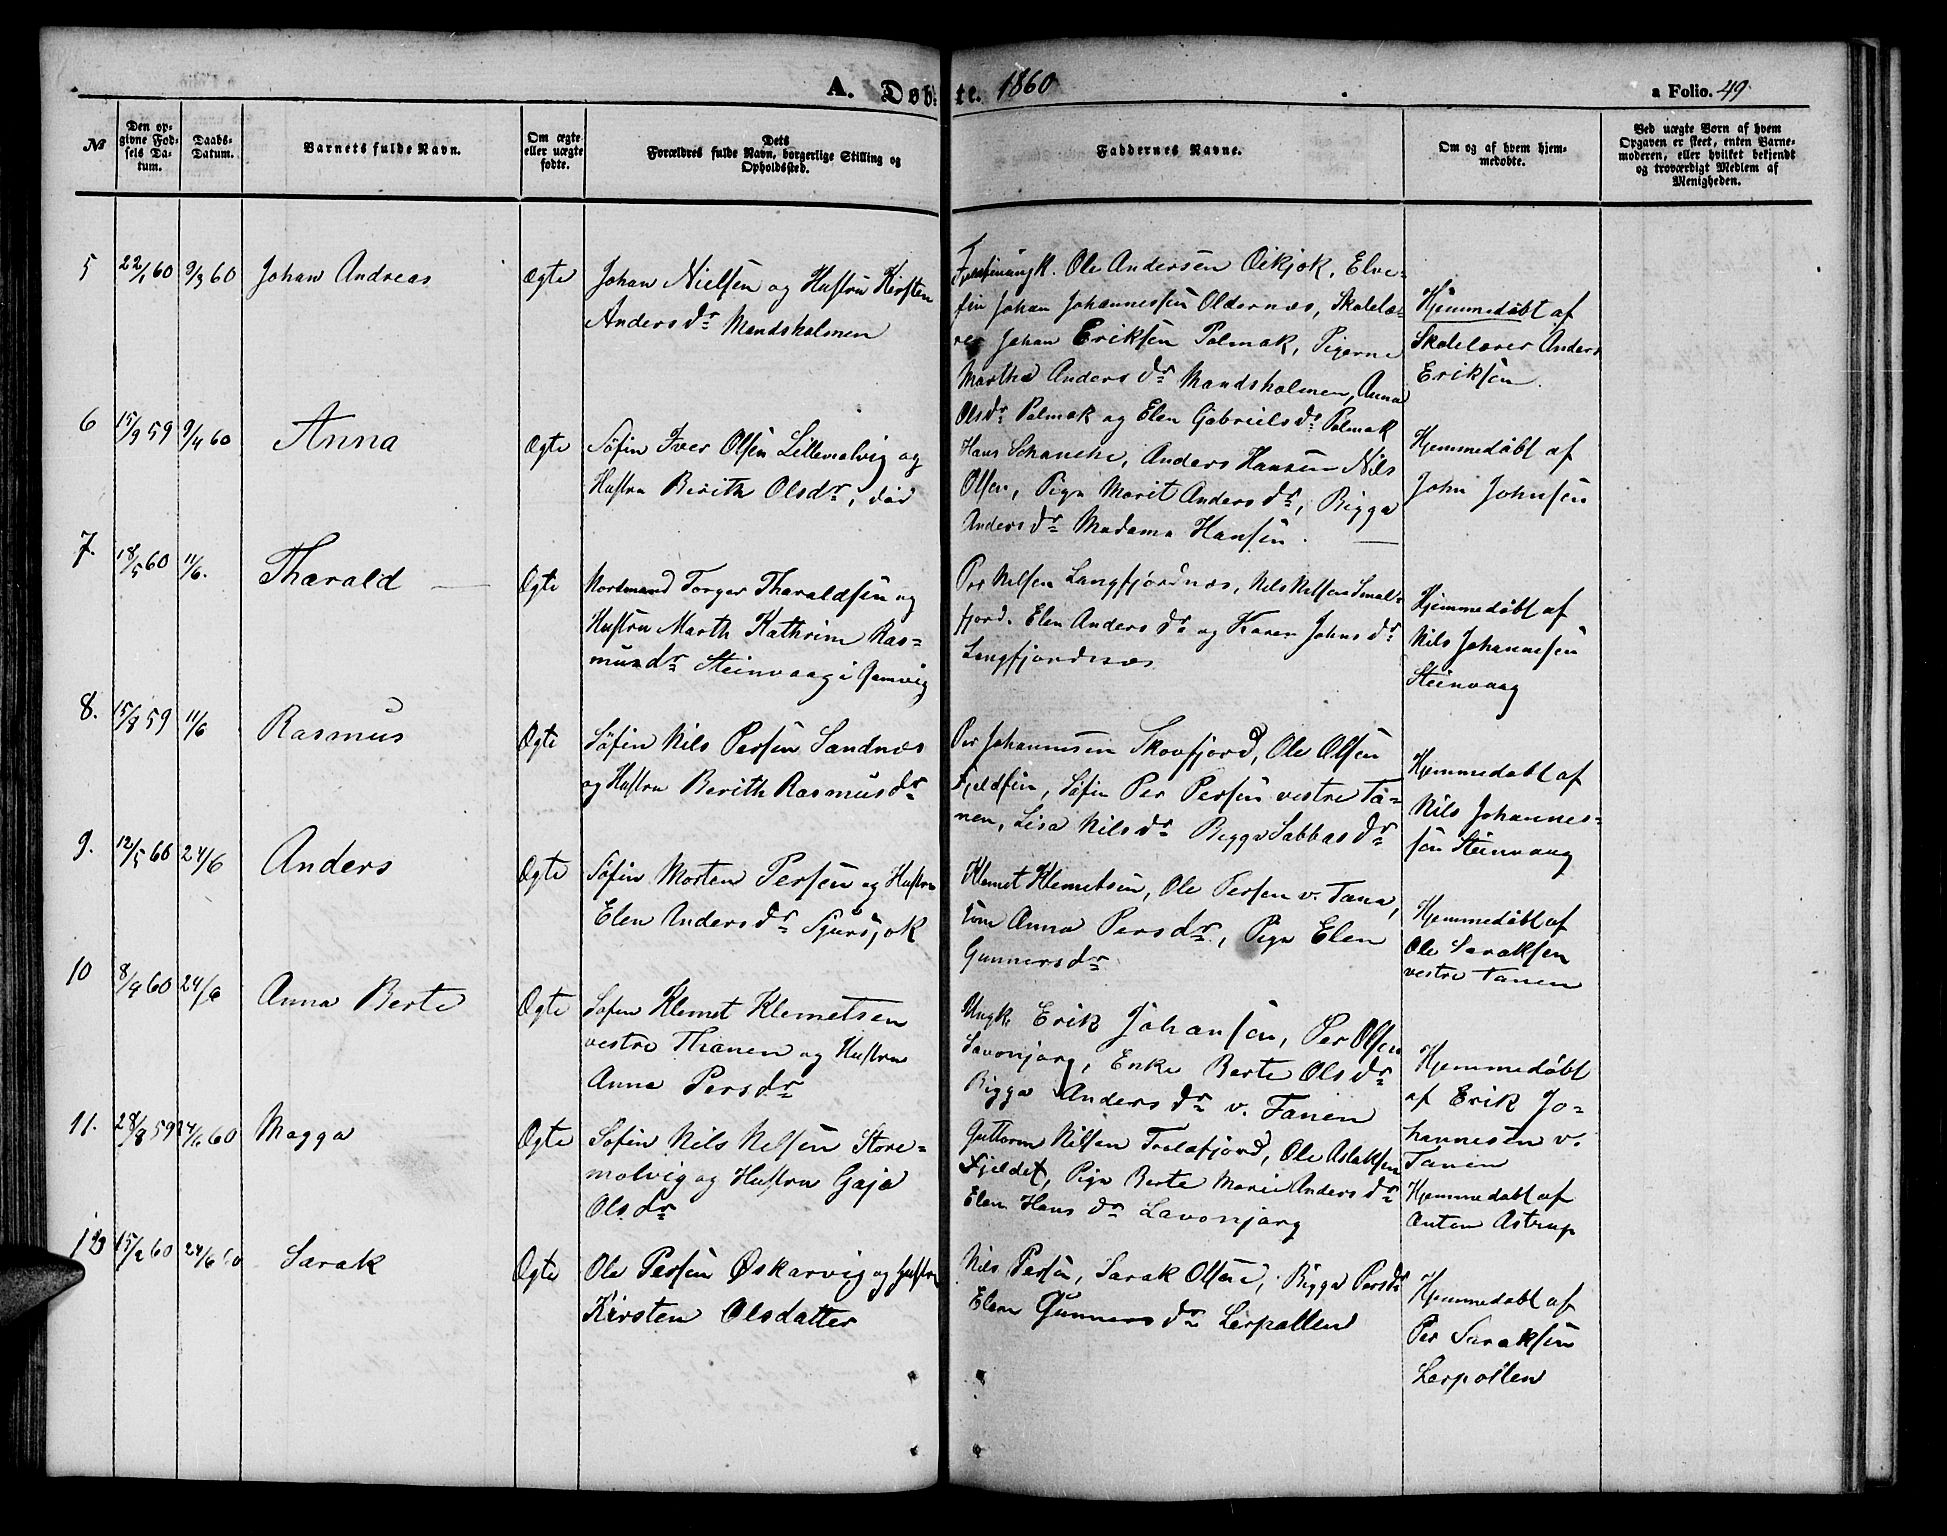 A. Døbte. 1860
a Folio. 49.
№
Den op-
givne Fød-
sels Da-
tum.
Daabs-
Datum.
Barnets fulde Navn.
Om ægte
eller uægte
fødte.
Dets
Forældres fulde Navn, borgerlige Stilling og
Opholdssted.
Faddernes Navne.
Om og af hvem hjem-
medøbte.
Ved uægte Børn af hvem
Opgaven er skeet, enten Barne-
moderen, eller hvilket bekjendt
og troværdigt Medlem af
Menigheden.
5
22/1 60
9/3 60
Johan Andreas
Ægte
Johan Nielsen og Hustru Kirsten
Andersdr Mandsholmen
Ungk. Ole Andersen Oikjok, Elve-
fin Johan Johannessen Oldernæs, Skolelæ-
rer Johan Eriksen Polmak, Pigerne
Martha Andersdr Mandsholmen, Anna
Olsdr Polmak og Elen Gabrielsdr Polmak
Hjemmedøbt af
Skolelærer Anders
Eriksen.
6
15/9 59
9/4 60
Anna
Ægte
Søfin Iver Olsen Lillemolvig og
Hustru Berith Olsdr, død
Hans Schanche, Anders Hansen Nils
Olsen, Pige Marit Andersdr, Bigga
Andersdr Madama Hansen.
Hjemmedøbt af
John Johnsen
7.
18/5 60
11/6.
Tharald
Ægte
Nordmand Torger Tharaldsen og
Hustru Marth Kathrine Ras-
musdr Steinvaag i Gamvig
Per Nilsen Langfjordnæs, Nils Nilsen Smal-
fjord. Elen Andersdr og Karen Johnsdr
Langfjordnæs
Hjemmedøbt af
Nils Johannesen
Steinvaag
8.
15/8 59
11/6
Rasmus
Ægte
Søfin Nils Persen Sandnæs
og Hustru Berith Rasmusdr
Per Johannesen Skovfjord, Ole Olsen
Fjeldfin, Søfin Per Persen vestre Ta-
nen, Lisa Nilsdr Bigga Sabbasdr
Hjemmedøbt af
Nils Johannes-
sen Steinvaag
9.
12/5 60
24/6
Anders
Ægte
Søfin Morten Persen og Hustru
Elen Andersdr Sjursjok
Klemet Klemetsen, Ole Persen v. Tana,
Anna Persdr, Pige Elen
Gunnersdr
Hjemmedøbt af
Ole Saraksen
vestre Tanen
10
8/4 60
24/6
Anna Berte
Ægte
Søfin Klemet Klemetsen
vestre Thanen og Hustru
Anna Persdr
Ungk Erik Johansen, Per Olsen
Lavonjarg, Enke Berte Olsdr
Bigga Andersdr v. Tanen
Hjemmedøbt
af Erik Jo-
hannesen v.
Tanen
11.
28/8 59
24/6 60
Magga
Ægte
Søfin Nils Nilsen Store-
molvig og Hustru Gaja
Olsdr
Guttorm Nilsen Trollefjord, Ole Aslaksen
Fjeldet, Pige Berte Marie Andersdr
Elen Hansdr Lavonjarg
Hjemmedøbt af
Anton Astrup
12
15/2 60
24/6 60
Sarak
Ægte
Ole Persen Øskarvig og Hustru
Kirsten Olsdatter
Nils Persen, Sarak Olsen, Bigga Persdr
Elen Gunnersdr Lerpollen
Hjemmedøbt af
Per Saraksen
Lerpollen